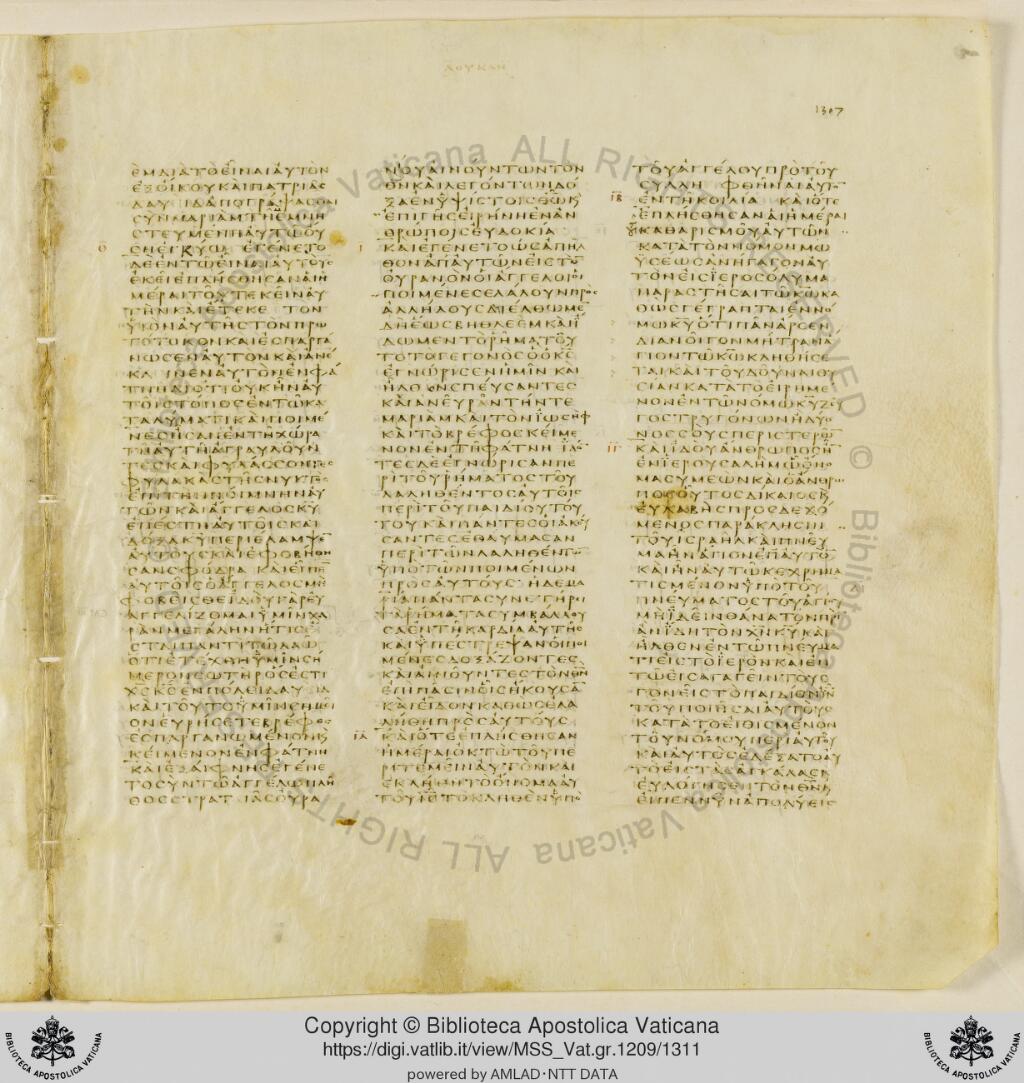 ΛΟΥΚΑΝ
1307
ΕΜΔΙΑΤΟΕΙΝΑΙΑΥΤΟΝ
ΕΞΟΙΚΟΥΚΑΙΠΑΤΡΙΑϹ
ΔΑΥΕΙΔΑΠΟΓΡΑΨΑϹΘΑΙ
ϹΥΝΜΑΡΙΑΜΤΗΕΜΝΗ
ϹΤΕΥΜΕΝΗΑΥΤΩΟΥ
Θ ϹΗΕΓΚΥΩ ΕΓΕΝΕΤΟ
ΔΕΕΝΤΩΕΙΝΑΙΑΥΤΟΥϹ
ΕΚΕΙΕΠΛΗϹΘΗϹΑΝΑΙΗ
ΜΕΡΑΙΤΟΥΤΕΚΕΙΝΑΥ
ΤΗΝΚΑΙΕΤΕΚΕ ΤΟΝ
ΥΙΟΝΑΥΤΗϹΤΟΝΠΡΩ
ΤΟΤΟΚΟΝΚΑΙΕϹΠΑΡΓΑ
ΝΩϹΕΝΑΥΤΟΝΚΑΙΑΝΕ
ΚΛΙΝΕΝΑΥΤΟΝΕΝΦΑ
ΤΝΗΔΙΟΤΙΟΥΚΗΝΑΥ
ΤΟΙϹΤΟΠΟϹΕΝΤΩΚΑ
ΤΑΛΥΜΑΤΙΚΑΙΠΟΙΜΕ
ΝΕϹΗϹΑΝΕΝΤΗΧΩΡΑ
ΤΗΑΥΤΗΑΓΡΑΥΛΟΥΝ
ΤΕϹΚΑΙΦΥΛΑϹϹΟΝΤΕϹ
ΦΥΛΑΚΑϹΤΗϹΝΥΚΤΟϹ
ΕΠΙΤΗΝΠΟΙΜΝΗΝΑΥ
ΤΩΝΚΑΙΑΓΓΕΛΟϹΚΥ
ΕΠΕϹΤΗΑΥΤΟΙϹΚΑΙ
ΔΟΞΑΚΥΠΕΡΙΕΛΑΜΨΕ
ΑΥΤΟΥϹΚΑΙΕΦΟΒΗΘΗ
ϹΑΝϹΦΟΔΡΑ ΚΑΙΕΙΠΕ
ΑΥΤΟΙϹΟΑΓΓΕΛΟϹΜΗ
ΦΟΒΕΙϹΘΕΙΔΟΥΓΑΡΕΥ
ΑΓΓΕΛΙΖΟΜΑΙΥΜΙΝΧΑ
ΡΑΝΜΕΓΑΛΗΝΗΤΙϹΕ
ϹΤΑΙΠΑΝΤΙΤΩΛΑΩ
ΟΤΙΕΤΕΧΘΗΥΜΙΝϹΗ
ΜΕΡΟΝϹΩΤΗΡΟϹΕϹΤΙ
ΧϹΚϹΕΝΠΟΛΕΙΔΑΥΕΙΔ
ΚΑΙΤΟΥΤΟΥΜΙΝϹΗΜΕΙ
ΟΝΕΥΡΗϹΕΤΕΒΡΕΦΟϹ
ΕϹΠΑΡΓΑΝΩΜΕΝΟΝΚ
ΚΕΙΜΕΝΟΝΕΝΦΑΤΝΗ
ΚΑΙΕΞΑΙΦΝΗϹΕΓΕΝΕ
ΤΟϹΥΝΤΩΑΓΓΕΛΩΠΛΗ
ΘΟϹϹΤΡΑΤΙΑϹΟΥΡΑ
ΝΟΥΑΙΝΟΥΝΤΩΝΤΟΝ
ΘΝΚΑΙΛΕΓΟΝΤΩΝΔΟ
ΞΑΕΝΥΨΙϹΤΟΙϹΘΩΚ
ΕΠΙΓΗϹΕΙΡΗΝΗΕΝΑΝ
ΘΡΩΠΟΙϹΕΥΔΟΚΙΑϹ
Ι ΚΑΙΕΓΕΝΕΤΟΩϹΑΠΗΛ
ΘΟΝΑΠΑΥΤΩΝΕΙϹΤΟ
ΟΥΡΑΝΟΝΟΙΑΓΓΕΛΟΙΟΙ
ΠΟΙΜΕΝΕϹΕΛΑΛΟΥΝΠΡΟϹ
ΑΛΛΗΛΟΥϹΔΙΕΛΘΩΜΕ
ΔΗΕΩϹΒΗΘΛΕΕΜΚΑΙΙ
ΔΩΜΕΝΤΟΡΗΜΑΤΟΥ
ΤΟΤΟΓΕΓΟΝΟϹΟΟΚϹ
ΕΓΝΩΡΙϹΕΝΗΜΙΝ ΚΑΙ
ΗΛΘΑΝϹΠΕΥϹΑΝΤΕϹ
ΚΑΙΑΝΕΥΡΑΝΤΗΝΤΕ
ΜΑΡΙΑΜΚΑΙΤΟΝΙΩϹΗΦ
ΚΑΙΤΟΒΡΕΦΟϹΚΕΙΜΕ
ΝΟΝΕΝΤΗΦΑΤΝΗ ΙΔΟ
ΤΕϹΔΕΕΓΝΩΡΙϹΑΝΠΕ
ΡΙΤΟΥΡΗΜΑΤΟϹΤΟΥ
ΛΑΛΗΘΕΝΤΟϹΑΥΤΟΙϹ
ΠΕΡΙΤΟΥΠΑΙΔΙΟΥΤΟΥ
ΤΟΥΚΑΙΠΑΝΤΕϹΟΙΑΚΟΥ
ϹΑΝΤΕϹΕΘΑΥΜΑϹΑΝ
ΠΕΡΙΤΩΝΛΑΛΗΘΕΝΤΩ
ΥΠΟΤΩΝΠΟΙΜΕΝΩΝ
ΠΡΟϹΑΥΤΟΥϹ ΗΔΕΜΑ
ΡΙΑΠΑΝΤΑϹΥΝΕΤΗΡΕΙ
ΤΑΡΗΜΑΤΑϹΥΜΒΑΛΛΟΥ
ϹΑΕΝΤΗΚΑΡΔΙΑΑΥΤΗϹ
ΚΑΙΥΠΕϹΤΡΕΨΑΝΟΙΠΟΙ
ΜΕΝΕϹΔΟΞΑΖΟΝΤΕϹ
ΚΑΙΑΙΝΟΥΝΤΕϹΤΟΝΘΝ
ΕΠΙΠΑϹΙΝΟΙϹΗΚΟΥϹΑ
ΚΑΙΕΙΔΟΝΚΑΘΩϹΕΛΑ
ΛΗΘΗΠΡΟϹΑΥΤΟΥϹ
ΙΑ ΚΑΙΟΤΕΕΠΛΗϹΘΗϹΑΝ
ΗΜΕΡΑΙΟΚΤΩΤΟΥΠΕ
ΡΙΤΕΜΕΙΝΑΥΤΟΝΚΑΙ
ΕΚΛΗΘΗΤΟΟΝΟΜΑΑΥ
ΤΟΥΙϹΤΟΚΛΗΘΕΝΥΠΟ
ΤΟΥΑΓΓΕΛΟΥΠΡΟΤΟΥ
ϹΥΛΛΗΜΦΘΗΝΑΙΑΥΤΟ
ΙΒ ΕΝΤΗΚΟΙΛΙΑ ΚΑΙΟΤΕ
ΕΠΛΗϹΘΗϹΑΝΑΙΗΜΕΡΑΙ
ΤΟΥΚΑΘΑΡΙϹΜΟΥΑΥΤΩΝ
ΚΑΤΑΤΟΝΝΟΜΟΝΜΩ
ΥϹΕΩϹΑΝΗΓΑΓΟΝΑΥ
ΤΟΝΕΙϹΙΕΡΟϹΟΛΥΜΑ
ΠΑΡΑϹΤΗϹΑΙΤΩΚΩΚΑ
ΘΩϹΓΕΓΡΑΠΤΑΙΕΝΝΟ
ΜΩΚΥΟΤΙΠΑΝΑΡϹΕΝ
ΔΙΑΝΟΙΓΟΝΜΗΤΡΑΝΑ
ΓΙΟΝΤΩΚΩΚΛΗΘΗϹΕ
ΤΑΙΚΑΙΤΟΥΔΟΥΝΑΙΘΥ
ϹΙΑΝΚΑΤΑΤΟΕΙΡΗΜΕ
ΝΟΝΕΝΤΩΝΟΜΩΚΥΖΕΥ
ΓΟϹΤΡΥΓΟΝΩΝΗΔΥΟ
ΝΟϹϹΟΥϹΠΕΡΙϹΤΕΡΩ
ΙΓ ΚΑΙΙΔΟΥΑΝΘΡΩΠΟϹΗ
ΕΝΙΕΡΟΥϹΑΛΗΜΩΟΝΟ
ΜΑϹΥΜΕΩΝΚΑΙΟΑΝΘΡΩ
ΠΟϹΟΥΤΟϹΔΙΚΑΙΟϹΚ
ΕΥΛΑΒΗϹΠΡΟϹΔΕΧΟ
ΜΕΝΟϹΠΑΡΑΚΛΗϹΙΝ
ΤΟΥΙϹΡΑΗΛΚΑΙΠΝΕΥ
ΜΑΗΝΑΓΙΟΝΕΠΑΥΤΟ
ΚΑΙΗΝΑΥΤΩΚΕΧΡΗΜΑ
ΤΙϹΜΕΝΟΝΥΠΟΤΟΥ
ΠΝΕΥΜΑΤΟϹΤΟΥΑΓΙΟΥ
ΜΗΙΔΕΙΝΘΑΝΑΤΟΝΠΡΙ
ΑΝΙΔΗΤΟΝΧΝΚΥΚΑΙ
ΗΛΘΕΝΕΝΤΩΠΝΕΥΜΑ
ΤΙΕΙϹΤΟΙΕΡΟΝΚΑΙΕΝ
ΤΩΕΙϹΑΓΑΓΕΙΝΤΟΥϹ
ΓΟΝΕΙϹΤΟΠΑΙΔΙΟΝΙΝ
ΤΟΥΠΟΙΗϹΑΙΑΥΤΟΥϹ
ΚΑΤΑΤΟΕΙΘΙϹΜΕΝΟΝ
ΤΟΥΝΟΜΟΥΠΕΡΙΑΥΤΟΥ
ΚΑΙΑΥΤΟϹΕΔΕΞΑΤΟΑΥ
ΤΟΕΙϹΤΑϹΑΓΚΑΛΑϹΚ
ΕΥΛΟΓΗϹΕΝΤΟΝΘΝΚ
ΕΙΠΕΝΝΥΝΑΠΟΛΥΕΙϹ
Vaticana ALL RIGHTS RESERVED © Biblioteca Apostolica Vaticana ALL RIGHTS
BIBLIOTECA APOSTOLICA VATICANA
Copyright © Biblioteca Apostolica Vaticana
https://digi.vatlib.it/view/MSS_Vat.gr.1209/1311
powered by AMLAD·NTT DATA
BIBLIOTECA APOSTOLICA VATICANA